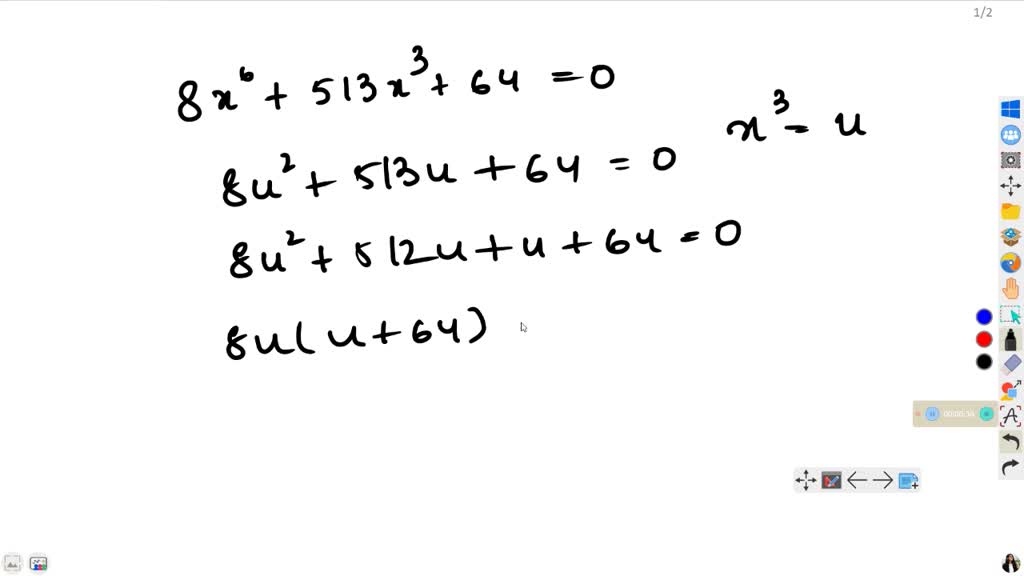 1/2
8x⁶ + 513x³ + 64 = 0
x³ = u
8u² + 513u + 64 = 0
8u² + 512u + u + 64 = 0
8u(u+64)